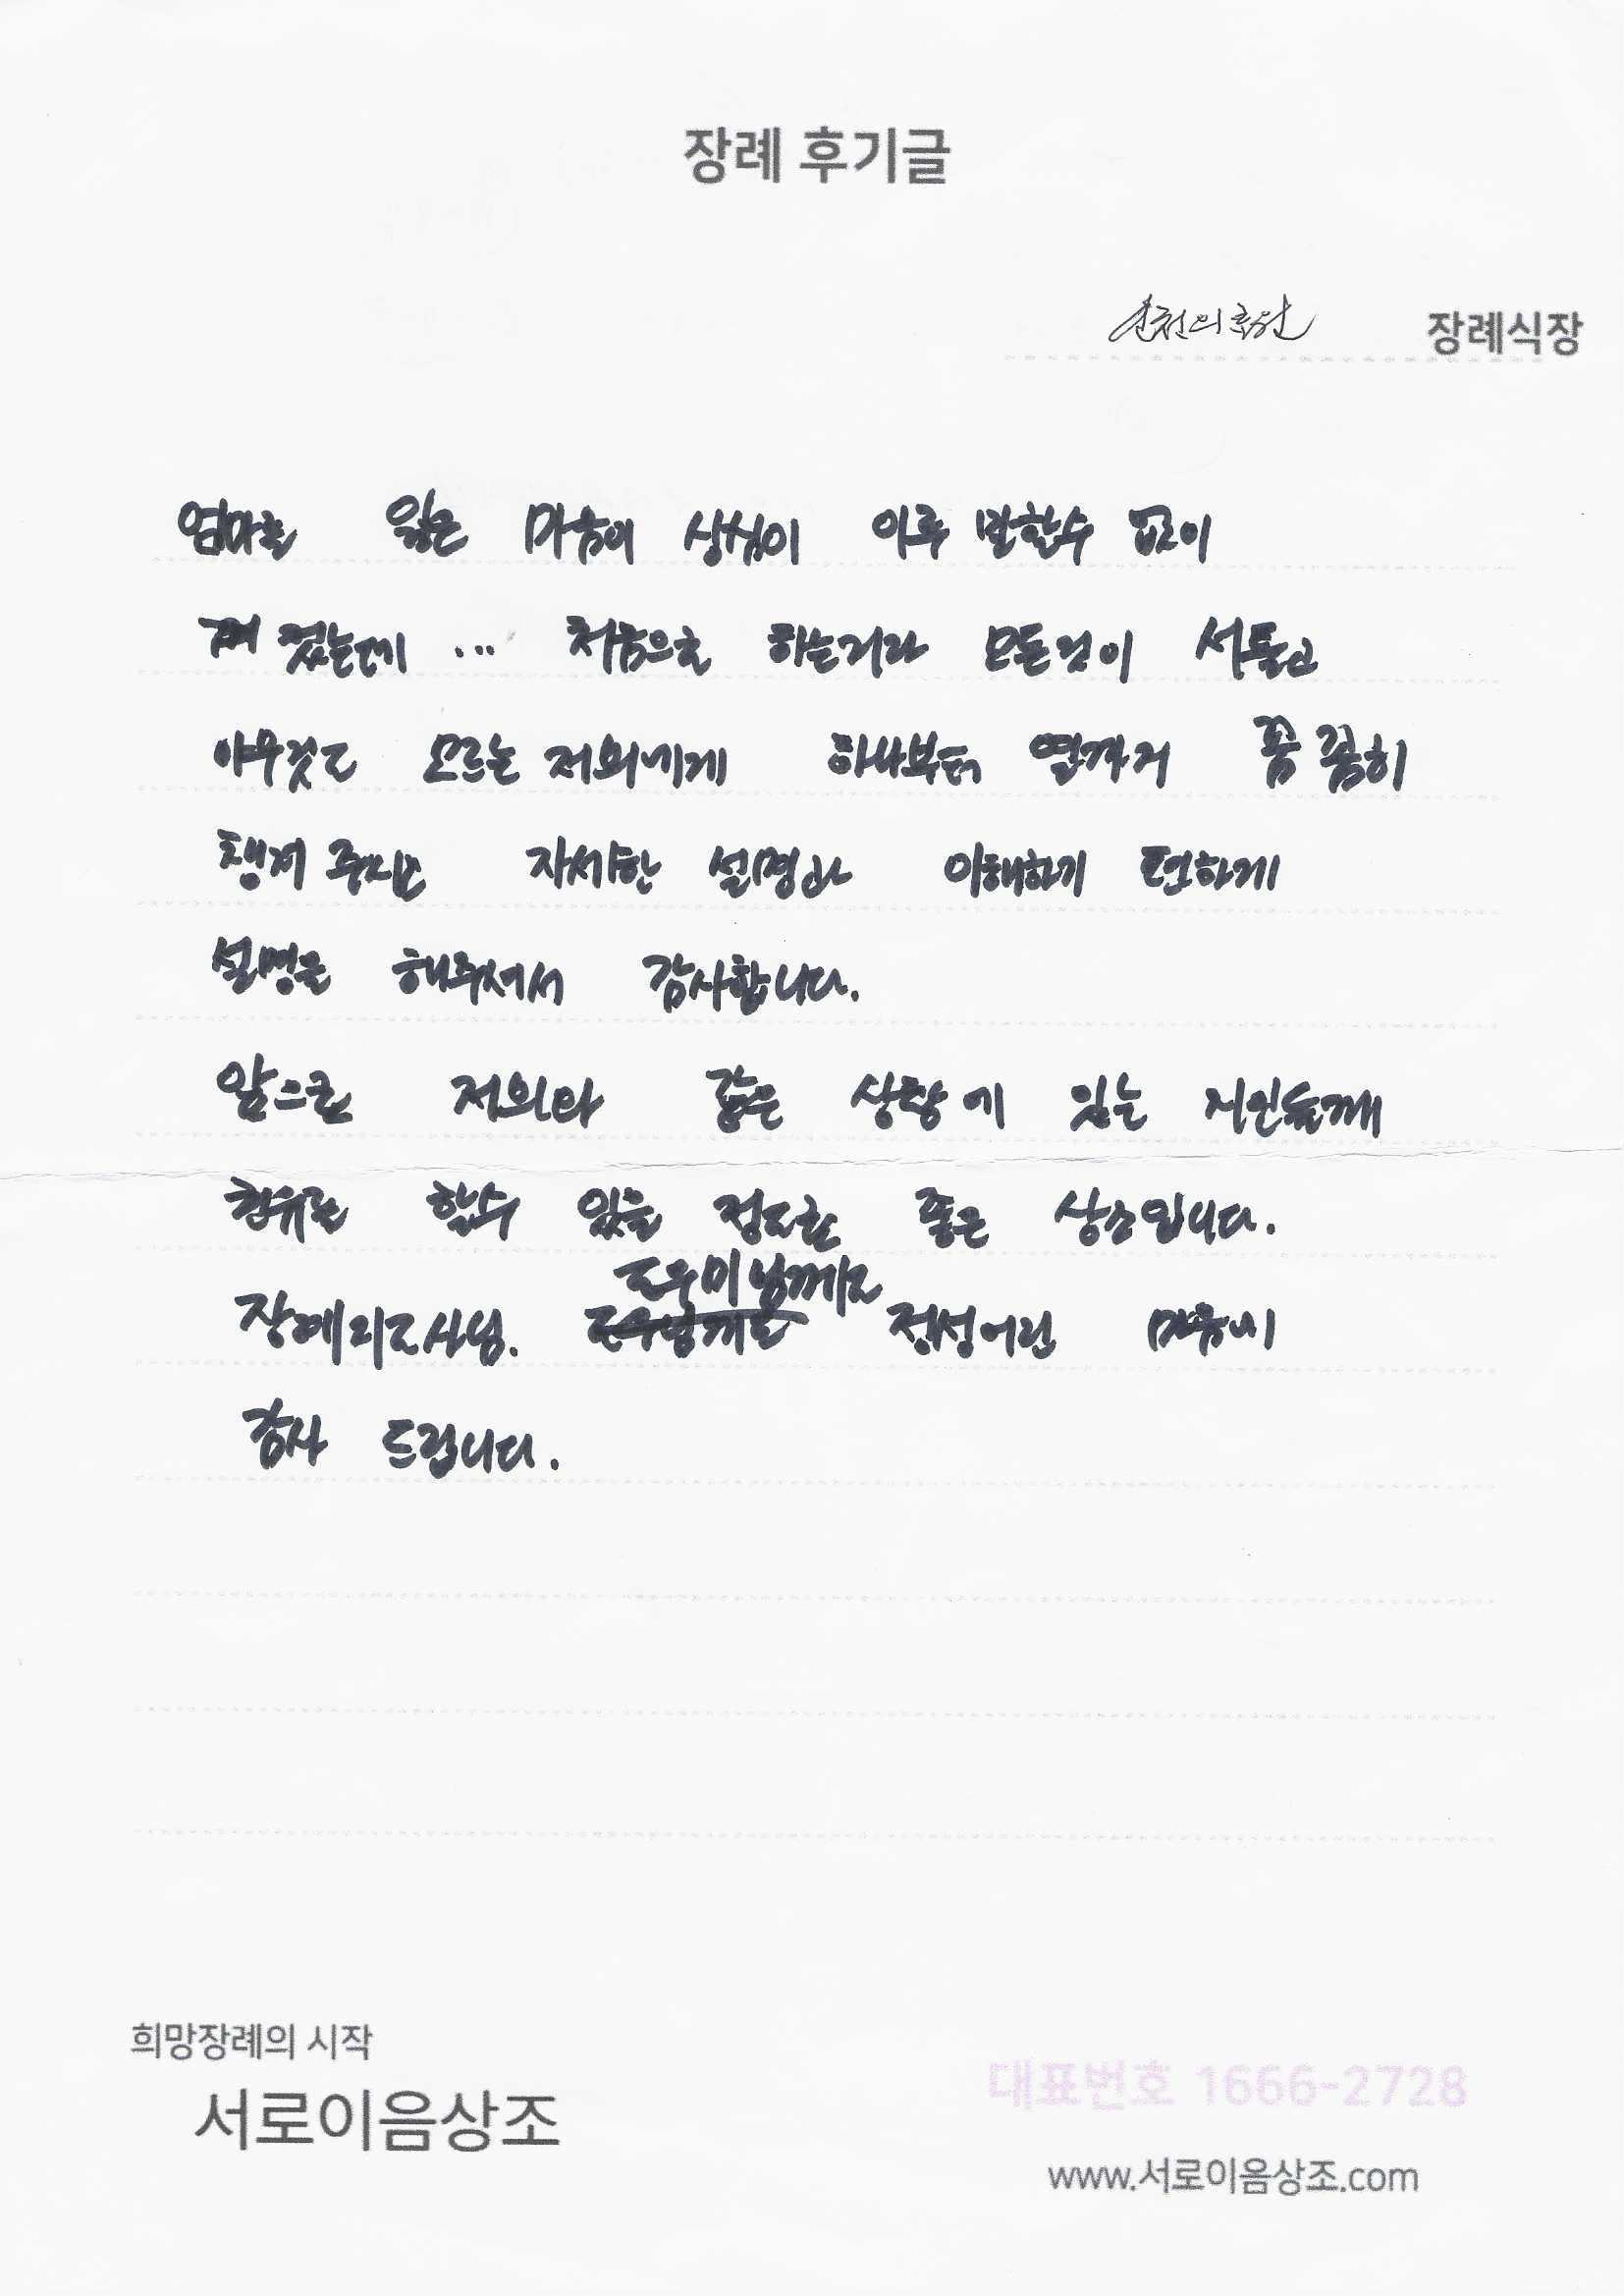 장례 후기글
인천의료원 장례식장
엄마를 잃은 마음이 상심이 이루 말할수 없이
커 컸는데 ... 처음으로 하는거라 모든것이 서툴고
아무것도 모르는 저희에게 하나부터 열까지 꼼꼼히
챙겨 주시고 자세한 설명과 이해하기 편하게
설명을 해주셔서 감사합니다.
앞으로 저희와 같은 상황에 있는 지인들께
권유를 할수 있을 정도로 좋은 상조입니다.
도우미님께도
장례지도사님. 정성어린 마음에
감사 드립니다.
희망장례의 시작
서로이음상조
대표번호 1666-2728
www.서로이음상조.com